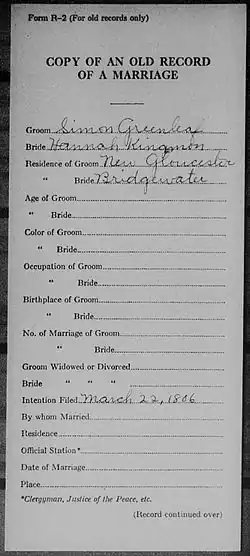 Form R-2 (For old records only)
COPY OF AN OLD RECORD
OF A MARRIAGE
Groom Simon Greenleaf
Bride Hannah Kingmon
Residence of Groom New Gloucester
" Bride Bridgewater
Age of Groom
" Bride
Color of Groom
" Bride
Occupation of Groom
" Bride
Birthplace of Groom
" Bride
No. of Marriage of Groom
" Bride
Groom Widowed or Divorced
Bride " " "
Intention Filed March 22, 1806
By whom Married
Residence
Official Station*
Date of Marriage
Place
*Clergyman, Justice of the Peace, etc.
(Record continued over)